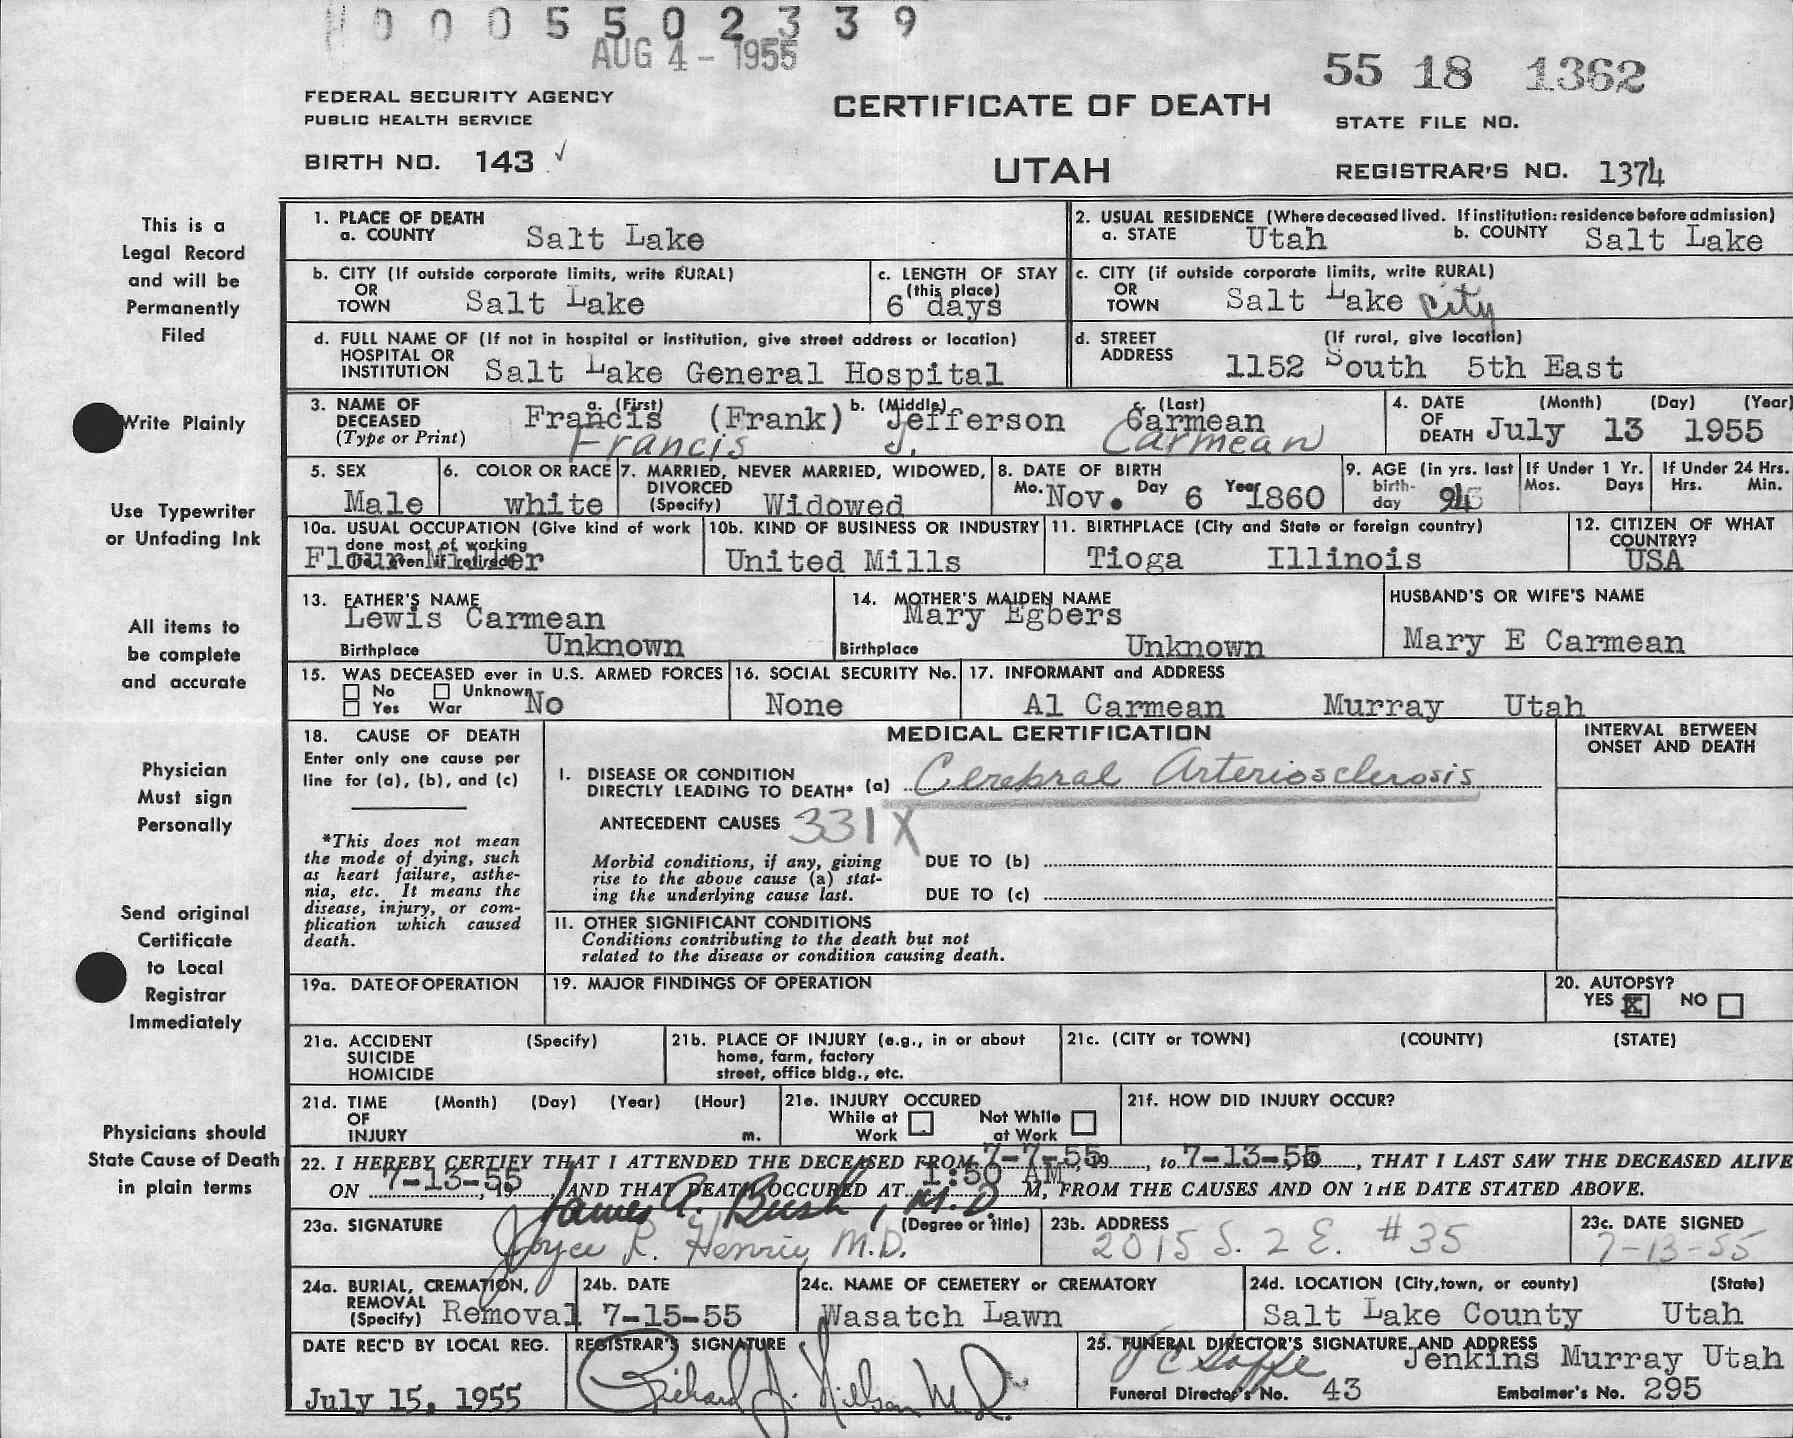 0 0 0 5 5 0 2 3 3 9
AUG 4 - 1955
55 18 1362
FEDERAL SECURITY AGENCY
PUBLIC HEALTH SERVICE
CERTIFICATE OF DEATH
STATE FILE NO.
BIRTH NO. 143 ✓
UTAH
REGISTRAR'S NO. 1374
This is a
Legal Record
and will be
Permanently
Filed
Write Plainly
Use Typewriter
or Unfading Ink
All items to
be complete
and accurate
Physician
Must sign
Personally
Send original
Certificate
to Local
Registrar
Immediately
Physicians should
State Cause of Death
in plain terms
1. PLACE OF DEATH
a. COUNTY Salt Lake
2. USUAL RESIDENCE (Where deceased lived. If institution: residence before admission)
a. STATE Utah b. COUNTY Salt Lake
b. CITY (If outside corporate limits, write RURAL)
OR
TOWN Salt Lake
c. LENGTH OF STAY
(this place)
6 days
c. CITY (if outside corporate limits, write RURAL)
OR
TOWN Salt Lake City
d. FULL NAME OF (If not in hospital or institution, give street address or location)
HOSPITAL OR
INSTITUTION Salt Lake General Hospital
d. STREET (If rural, give location)
ADDRESS 1152 South 5th East
3. NAME OF a. (First) b. (Middle) c. (Last)
DECEASED Francis (Frank) Jefferson Carmean
(Type or Print) Francis J. Carmean
4. DATE (Month) (Day) (Year)
OF
DEATH July 13 1955
5. SEX
Male
6. COLOR OR RACE
white
7. MARRIED, NEVER MARRIED, WIDOWED,
DIVORCED
(Specify) Widowed
8. DATE OF BIRTH
Mo. Nov. Day 6 Year 1860
9. AGE (in yrs. last
birth-
day 94
If Under 1 Yr.
Mos. Days
If Under 24 Hrs.
Hrs. Min.
10a. USUAL OCCUPATION (Give kind of work
done most of working
life, even if retired)
Flour Miller
10b. KIND OF BUSINESS OR INDUSTRY
United Mills
11. BIRTHPLACE (City and State or foreign country)
Tioga Illinois
12. CITIZEN OF WHAT
COUNTRY?
USA
13. FATHER'S NAME
Lewis Carmean
Birthplace Unknown
14. MOTHER'S MAIDEN NAME
Mary Egbers
Birthplace Unknown
HUSBAND'S OR WIFE'S NAME
Mary E Carmean
15. WAS DECEASED ever in U.S. ARMED FORCES
No Unknown No
Yes War
16. SOCIAL SECURITY No.
None
17. INFORMANT and ADDRESS
Al Carmean Murray Utah
18. CAUSE OF DEATH
Enter only one cause per
line for (a), (b), and (c)
*This does not mean
the mode of dying, such
as heart failure, asthe-
nia, etc. It means the
disease, injury, or com-
plication which caused
death.
MEDICAL CERTIFICATION
INTERVAL BETWEEN
ONSET AND DEATH
I. DISEASE OR CONDITION
DIRECTLY LEADING TO DEATH* (a) Cerebral Arteriosclerosis
ANTECEDENT CAUSES 331X
Morbid conditions, if any, giving
rise to the above cause (a) stat-
ing the underlying cause last.
DUE TO (b)
DUE TO (c)
II. OTHER SIGNIFICANT CONDITIONS
Conditions contributing to the death but not
related to the disease or condition causing death.
19a. DATE OF OPERATION
19. MAJOR FINDINGS OF OPERATION
20. AUTOPSY?
YES X NO
21a. ACCIDENT (Specify)
SUICIDE
HOMICIDE
21b. PLACE OF INJURY (e.g., in or about
home, farm, factory
street, office bldg., etc.
21c. (CITY or TOWN) (COUNTY) (STATE)
21d. TIME (Month) (Day) (Year) (Hour)
OF
INJURY m.
21e. INJURY OCCURED
While at Not While
Work at Work
21f. HOW DID INJURY OCCUR?
22. I HEREBY CERTIFY THAT I ATTENDED THE DECEASED FROM 7-7-55, 19, to 7-13-55, 19, THAT I LAST SAW THE DECEASED ALIVE
ON 7-13-55, 19, AND THAT DEATH OCCURED AT 1:50 AM M, FROM THE CAUSES AND ON THE DATE STATED ABOVE.
James A. Bush, M.D
23a. SIGNATURE (Degree or title)
Joyce R. Henrie, M.D.
23b. ADDRESS
2015 S. 2 E. #35
23c. DATE SIGNED
7-13-55
24a. BURIAL, CREMATION,
REMOVAL
(Specify) Removal
24b. DATE
7-15-55
24c. NAME OF CEMETERY or CREMATORY
Wasatch Lawn
24d. LOCATION (City, town, or county) (State)
Salt Lake County Utah
DATE REC'D BY LOCAL REG.
July 15, 1955
REGISTRAR'S SIGNATURE
Richard J. Nielson M.D.
25. FUNERAL DIRECTOR'S SIGNATURE AND ADDRESS
Jenkins Murray Utah
Funeral Director's No. 43 Embalmer's No. 295